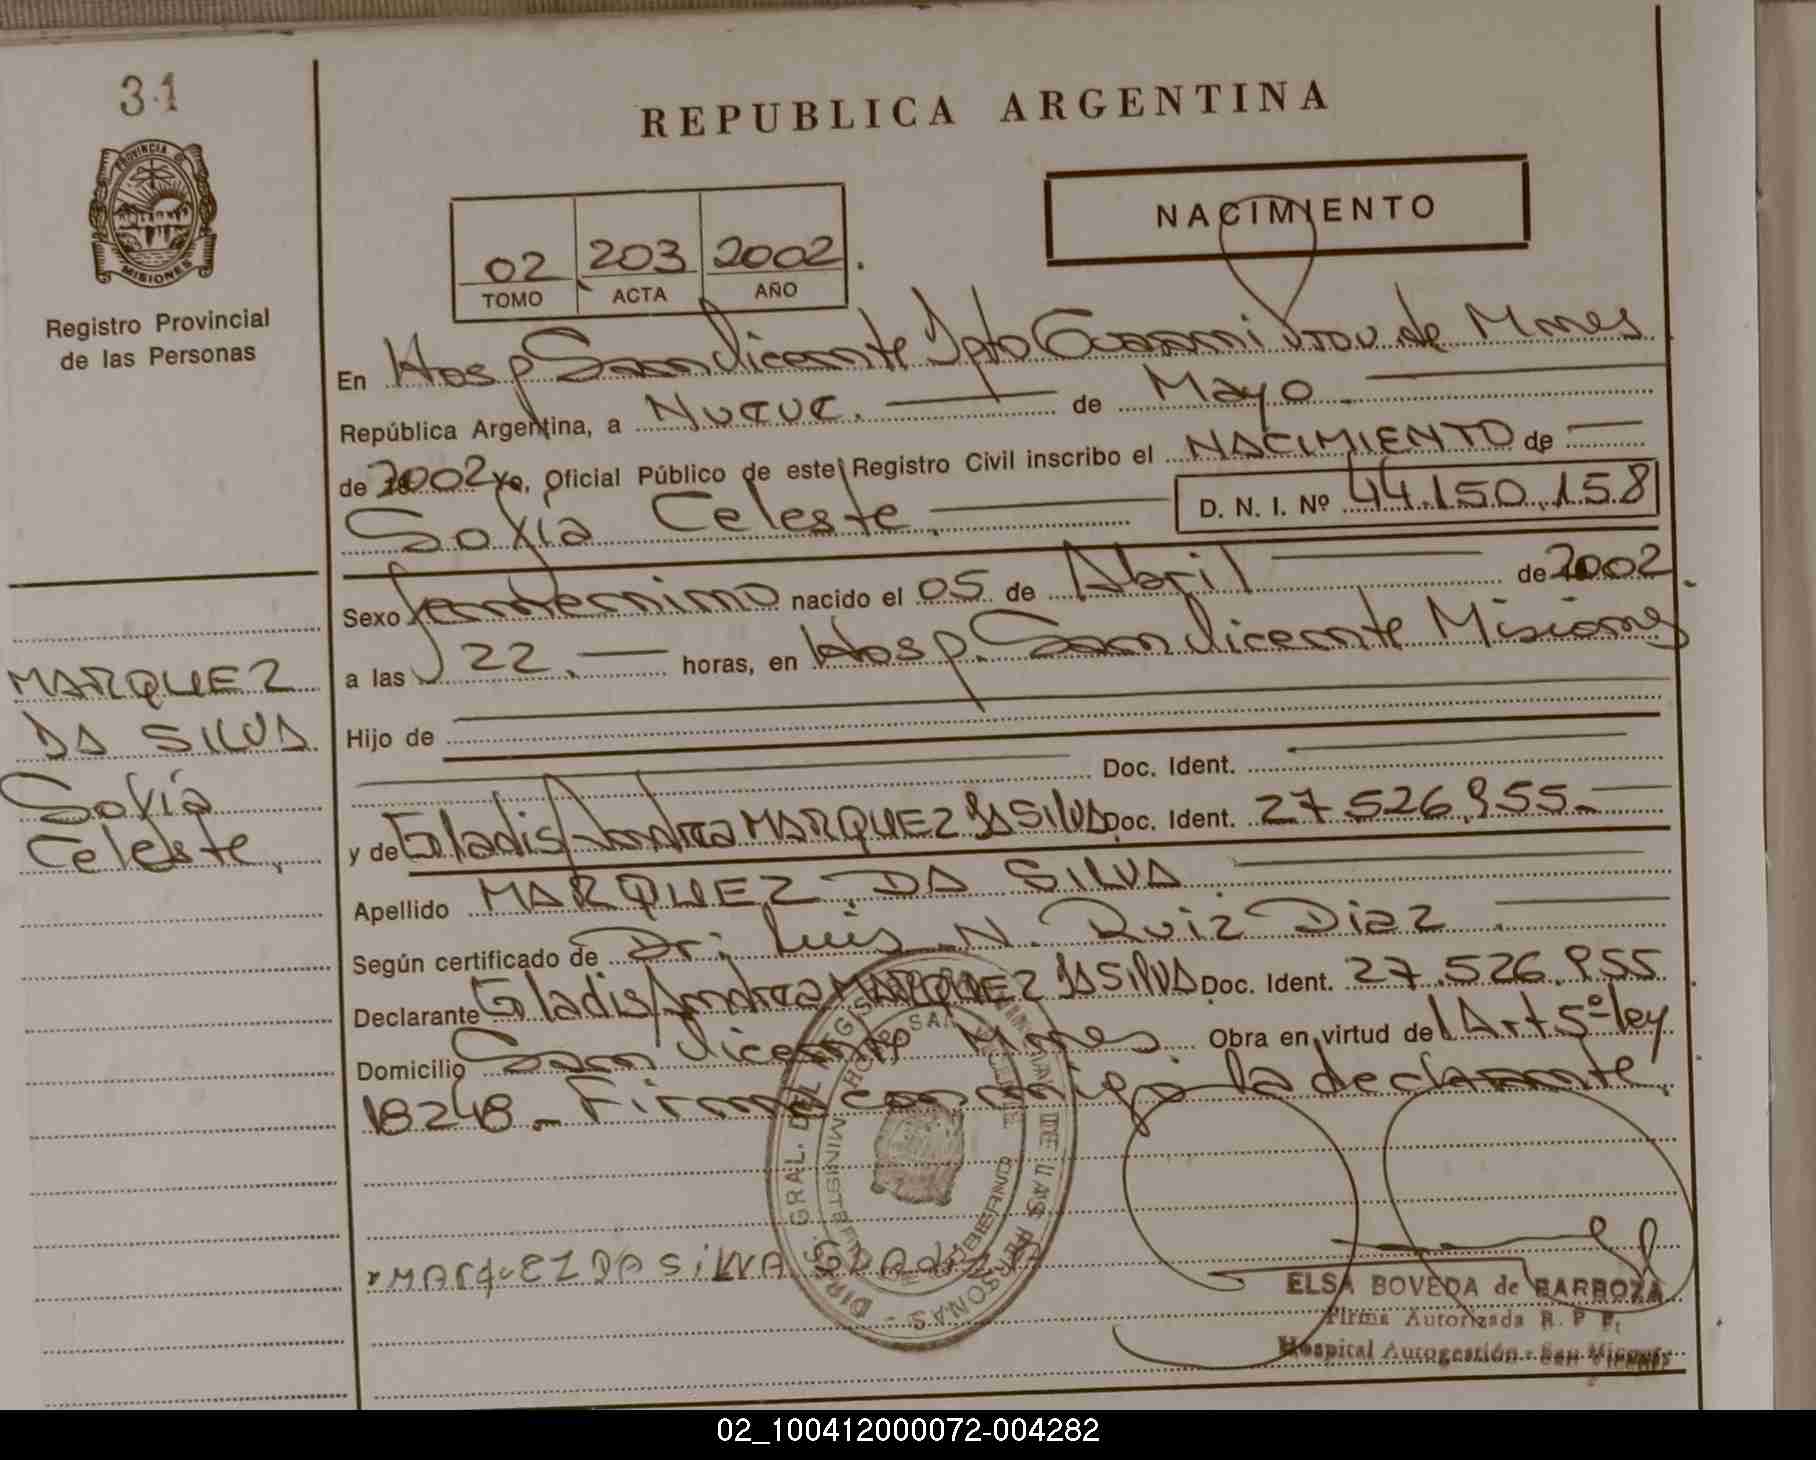 31
REPUBLICA ARGENTINA
PROVINCIA DE
MISIONES
Registro Provincial
de las Personas
NACIMIENTO
02 203 2002.
TOMO ACTA AÑO
En Hosp San Vicente Dpto Guarani Prov de Mnes
República Argentina, a Nueve. de Mayo
de 2002 Yo, Oficial Público de este Registro Civil inscribo el NACIMIENTO de
Sofia Celeste. D. N. I. Nº 44.150.158
Sexo femenino nacido el 05 de Abril de 2002.
a las 22. horas, en Hosp. San Vicente Misiones
Hijo de
Doc. Ident.
y de Gladis Andrea MARQUEZ DA SILVA Doc. Ident. 27.526.955.
Apellido MARQUEZ DA SILVA.
Según certificado de Dr: Luis N. Ruiz Diaz.
Declarante Gladis Andrea MARQUEZ DA SILVA Doc. Ident. 27.526.955.
Domicilio San Vicente Mnes. Obra en virtud del Art 5º ley
18248. Firma conmigo la declarante.
MARQUEZ
DA SILVA
Sofia
Celeste.
MARquEZ DA SiLVA GLADIS
ELSA BOVEDA de BARBOZA
Firma Autorizada R. P. P.
Hospital Autogestión - San Vicente
02_100412000072-004282